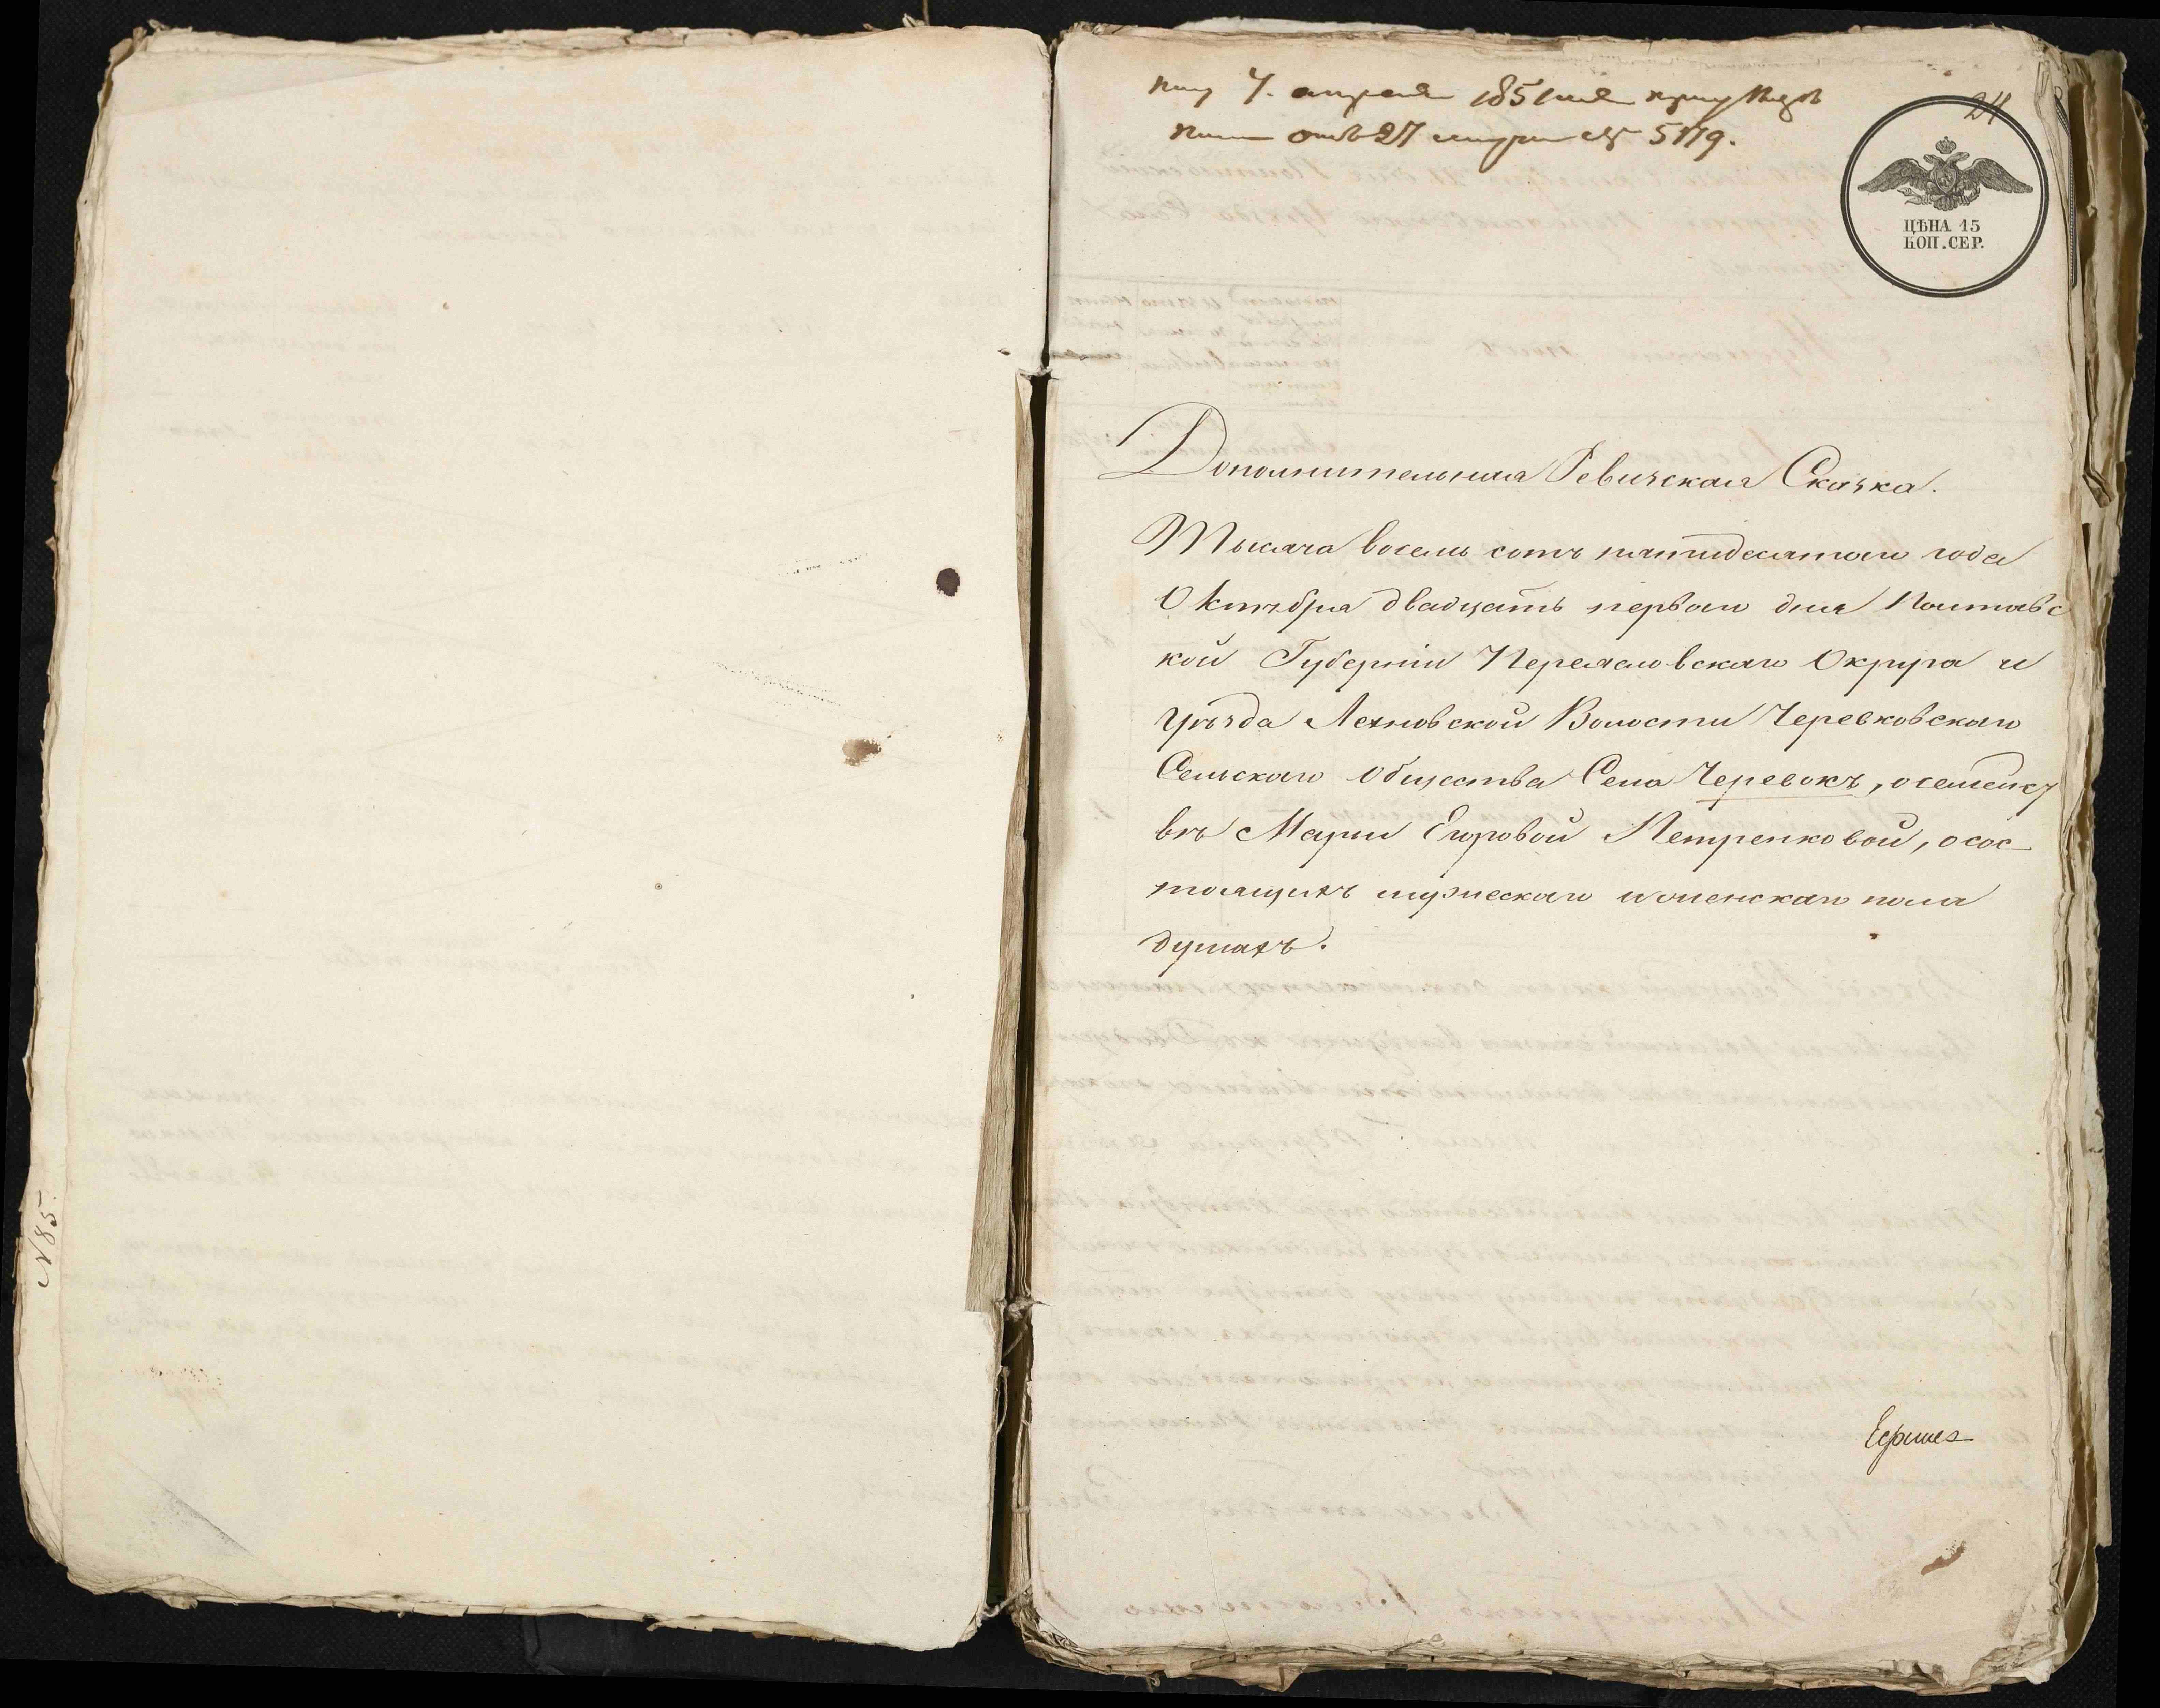 24
7. апреля 1851
отъ 27 5179.
ЦѢНА 15
КОП. СЕР.
Дополнительная Ревизская Сказка.
Тысяча восемь сотъ пятидесятаго года
Октября двадцать перваго дня Полтавс
кой Губерніи Переясловскаго Округа и
уѣзда Лехновской Волости Черевковскаго
Сельскаго общества Села Черевокъ, о семейст
вѣ Марьи Егоровой Петренковой, о сос
тоящихъ мужескаго и женскаго пола
душахъ.
N 85.